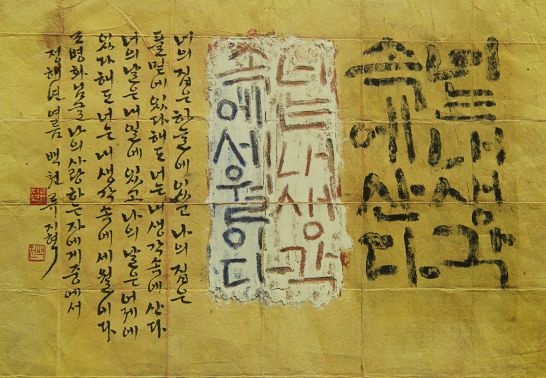 너는 내 생각
속에 산다.
너는 내 생각
속에 세월이다
너의 집은 하늘에 있고 나의 집은
풀 밑에 있다 해도 너는 내 생각 속에 산다
너의 날은 내일에 있고 나의 날은 어제에
있다 해도 너는 내 생각 속에 세월이다
조병화님글 나의 사랑하는 자에게 중에서
정해년 여름 백천 류지혁